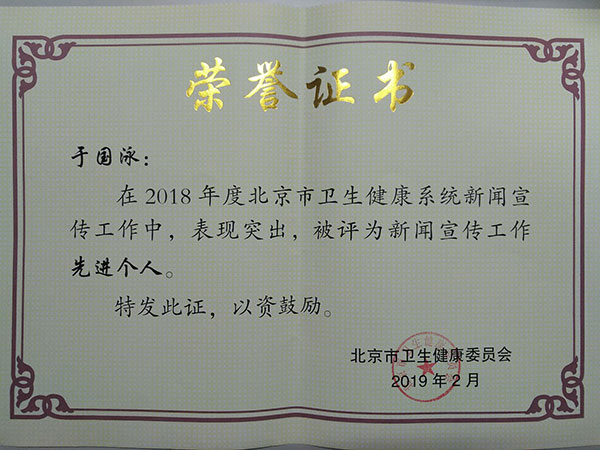 荣誉证书
于国泳：
在 2018 年度北京市卫生健康系统新闻宣
传工作中，表现突出，被评为新闻宣传工作
先进个人。
特发此证，以资鼓励。
北京市卫生健康委员会
2019 年 2 月